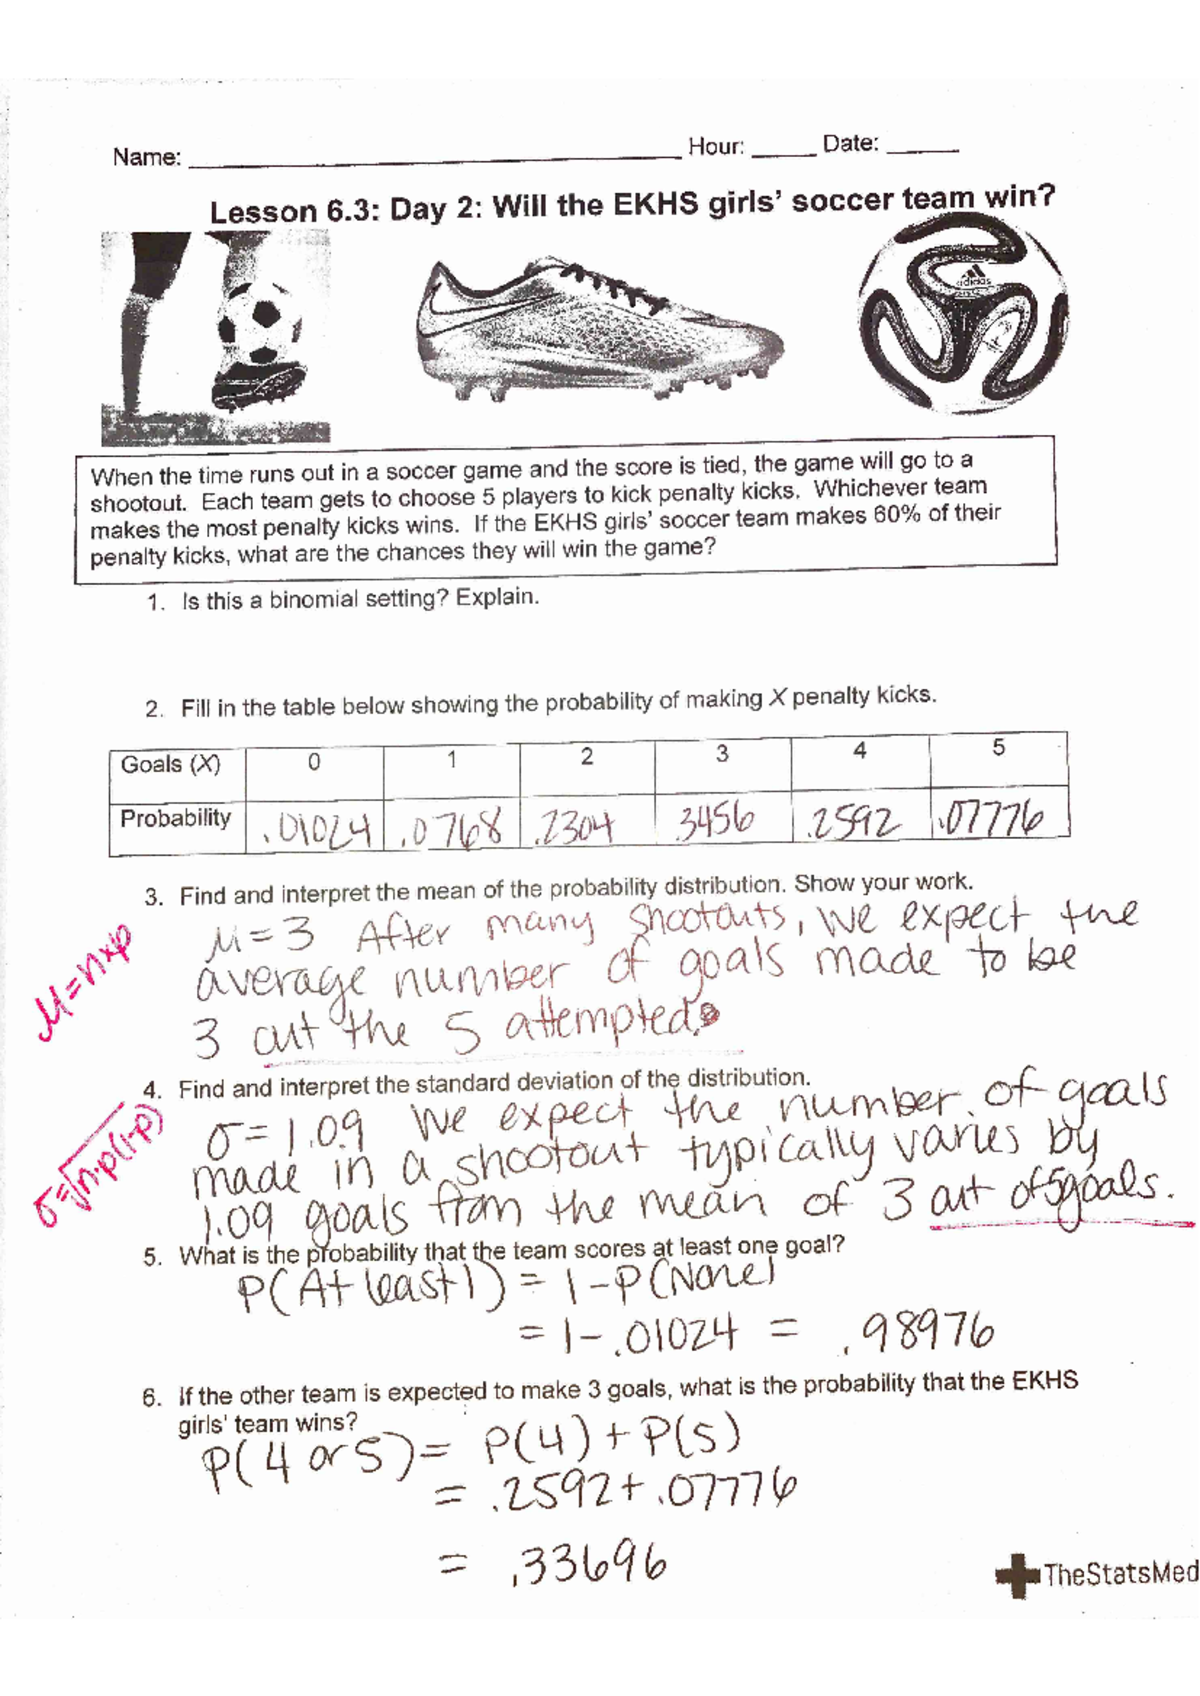 Name: Hour: Date:
Lesson 6.3: Day 2: Will the EKHS girls' soccer team win?
adidas
When the time runs out in a soccer game and the score is tied, the game will go to a
shootout. Each team gets to choose 5 players to kick penalty kicks. Whichever team
makes the most penalty kicks wins. If the EKHS girls' soccer team makes 60% of their
penalty kicks, what are the chances they will win the game?
1. Is this a binomial setting? Explain.
2. Fill in the table below showing the probability of making X penalty kicks.
Goals (X) 0 1 2 3 4 5
Probability .01024 .0768 .2304 .3456 .2592 .07776
3. Find and interpret the mean of the probability distribution. Show your work.
μ = n×p
μ = 3 After many shootouts, we expect the
average number of goals made to be
3 out the 5 attempted.
4. Find and interpret the standard deviation of the distribution.
σ = √n·p(1-p)
σ = 1.09 We expect the number of goals
made in a shootout typically varies by
1.09 goals from the mean of 3 out of 5 goals.
5. What is the probability that the team scores at least one goal?
P(At least 1) = 1 - P(None)
= 1 - .01024 = .98976
6. If the other team is expected to make 3 goals, what is the probability that the EKHS
girls' team wins?
P(4 or 5) = P(4) + P(5)
= .2592 + .07776
= .33696
TheStatsMed